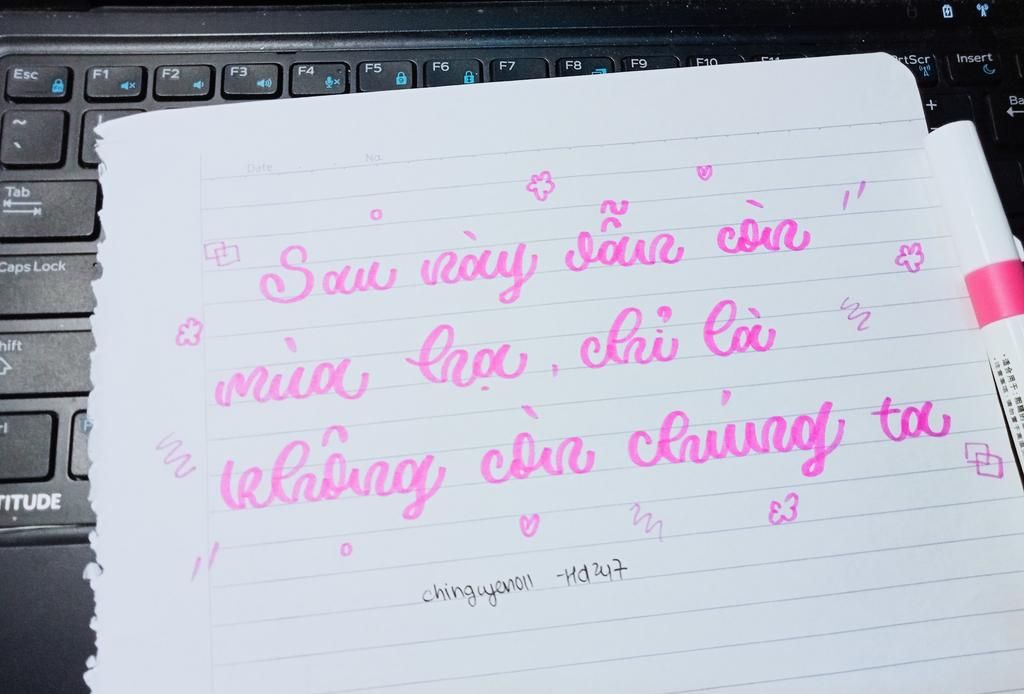 Esc F1 F2 F3 F4 F5 F6 F7 F8 F9 F10 F11 PrtScr Insert
~ `
+
Tab
Caps Lock
TITUDE
Date No.
Sau này vẫn còn
mùa hạ, chỉ là
không còn chúng ta
chinguyen011 -Hd247